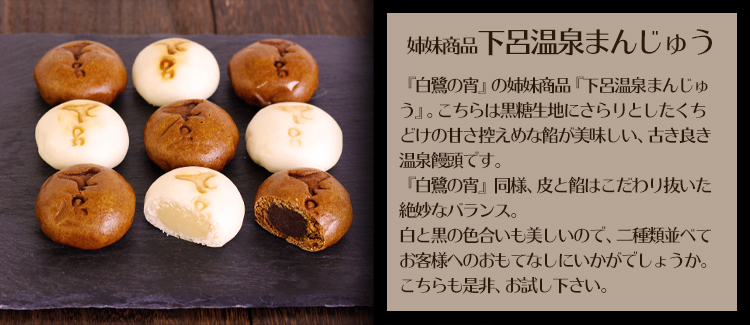 姉妹商品 下呂温泉まんじゅう
『白鷺の宵』の姉妹商品『下呂温泉まんじゅ
う』。こちらは黒糖生地にさらりとしたくち
どけの甘さ控えめな餡が美味しい、古き良き
温泉饅頭です。
『白鷺の宵』同様、皮と餡はこだわり抜いた
絶妙なバランス。
白と黒の色合いも美しいので、二種類並べて
お客様へのおもてなしにいかがでしょうか。
こちらも是非、お試し下さい。